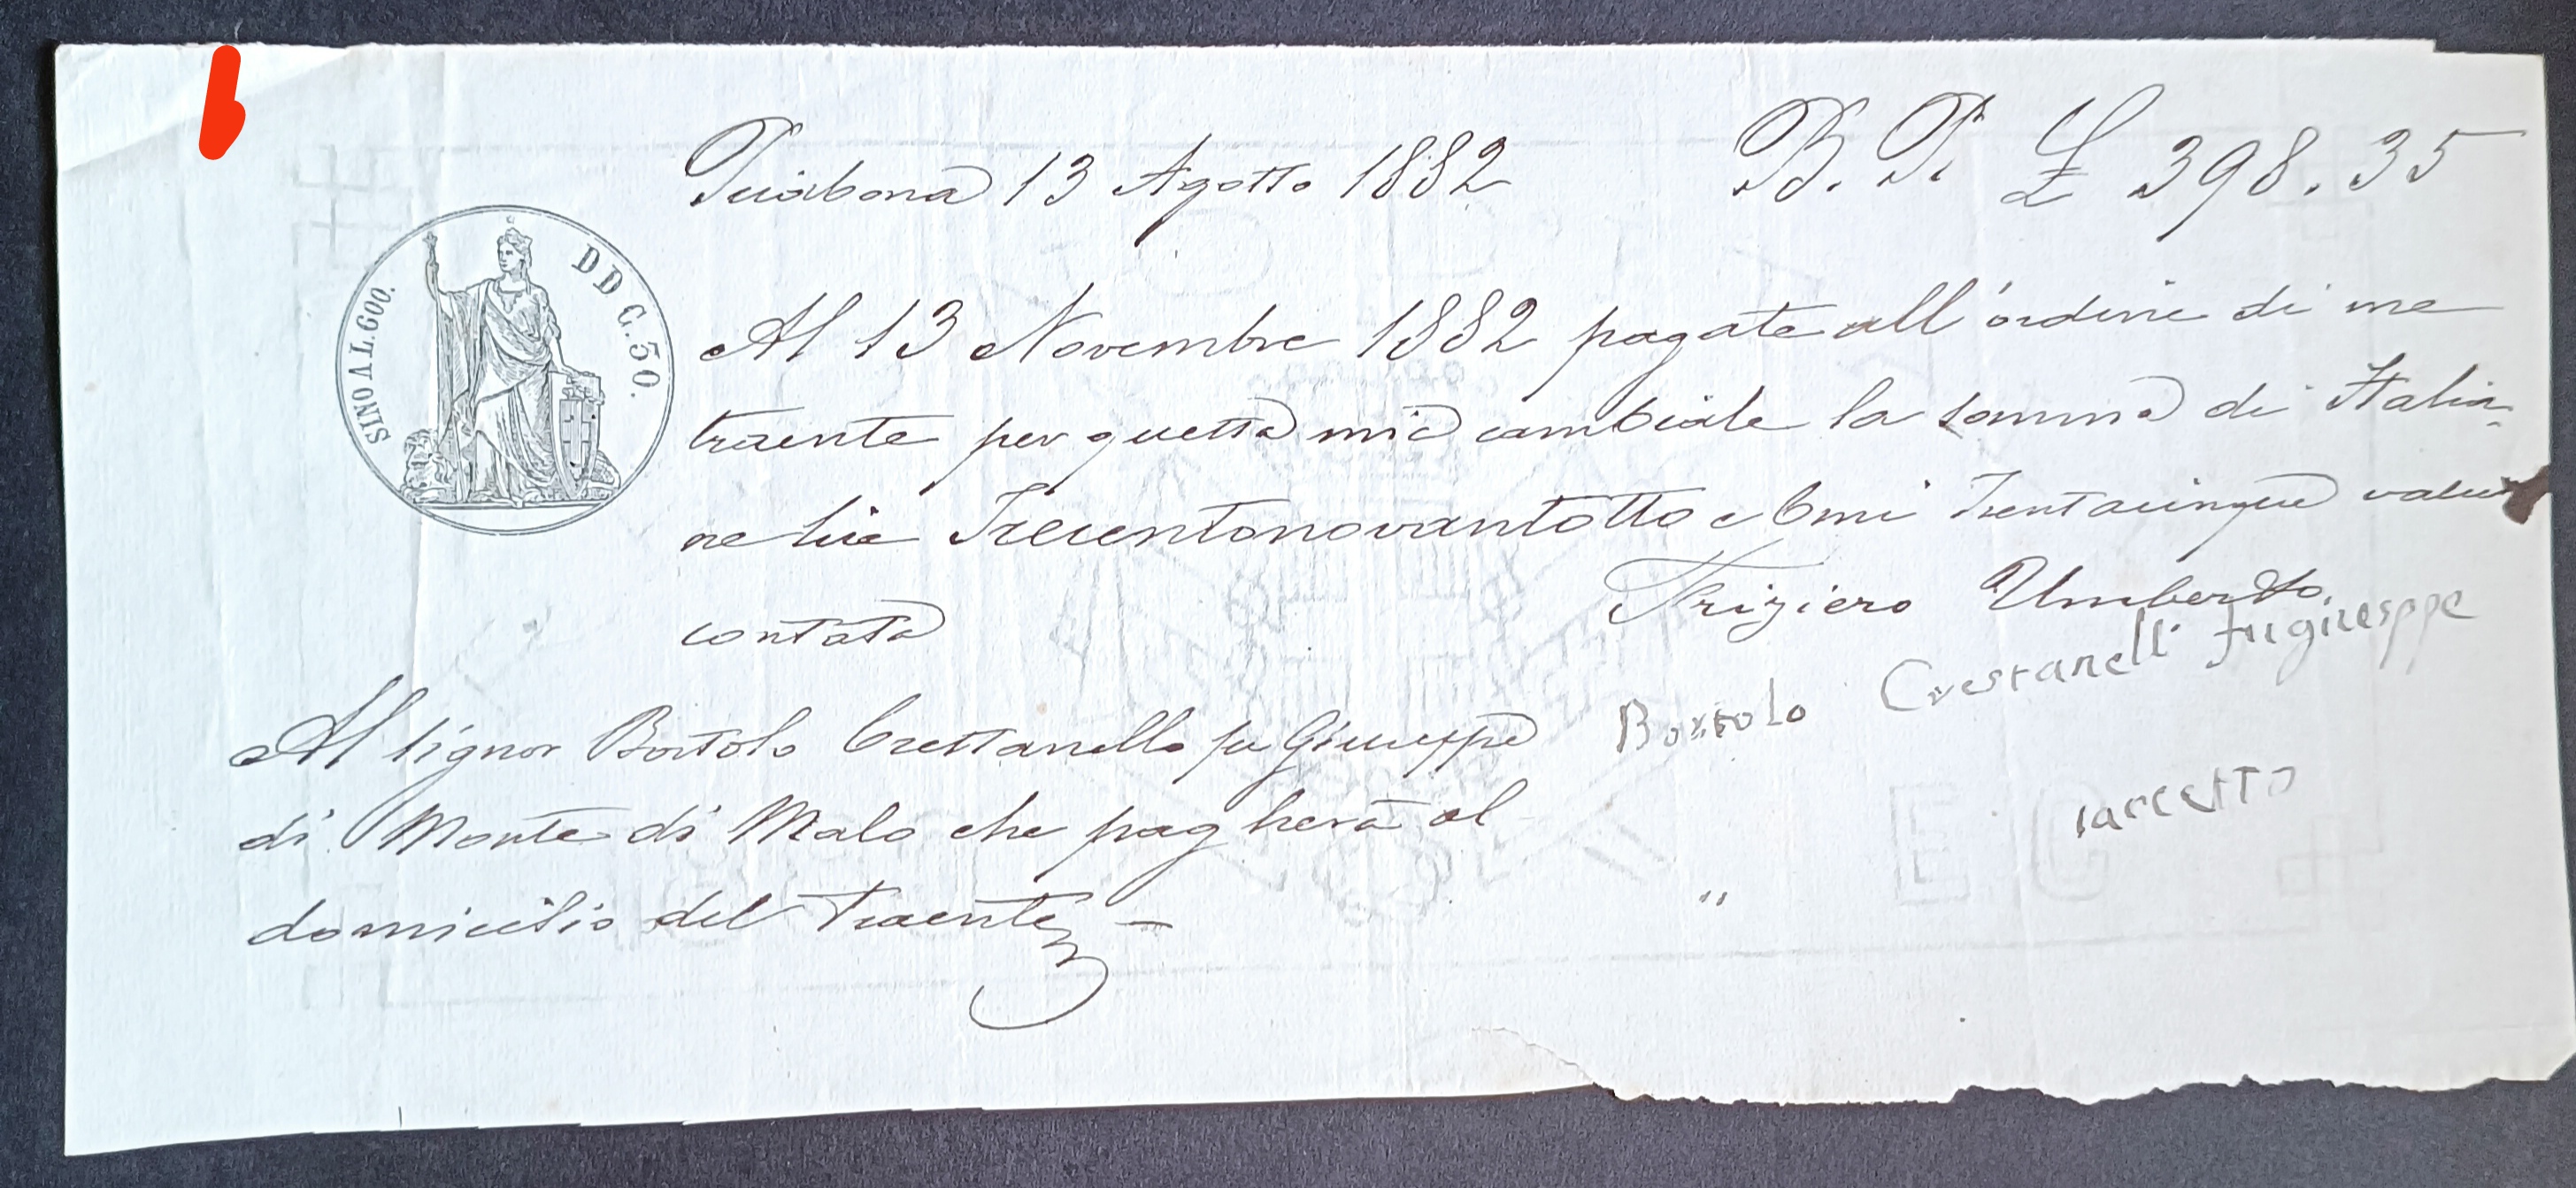 Priabona 13 Agosto 1882 B. P. £ 398.35
SINO A L. 600. D D C. 50.
Al 13 Novembre 1882 pagate all'ordine di me
traente per questa mia cambiale la somma di Italia-
ne Lire Trecentonovantotto e Cmi Trentacinque valuta
contata
Friziero Umberto
Bortolo Crestanell fu giuseppe
iaccetto
Al signor Bortolo Crestanello fu Giuseppe
di Monte di Malo che pagherà al
domicilio del Traente —
"